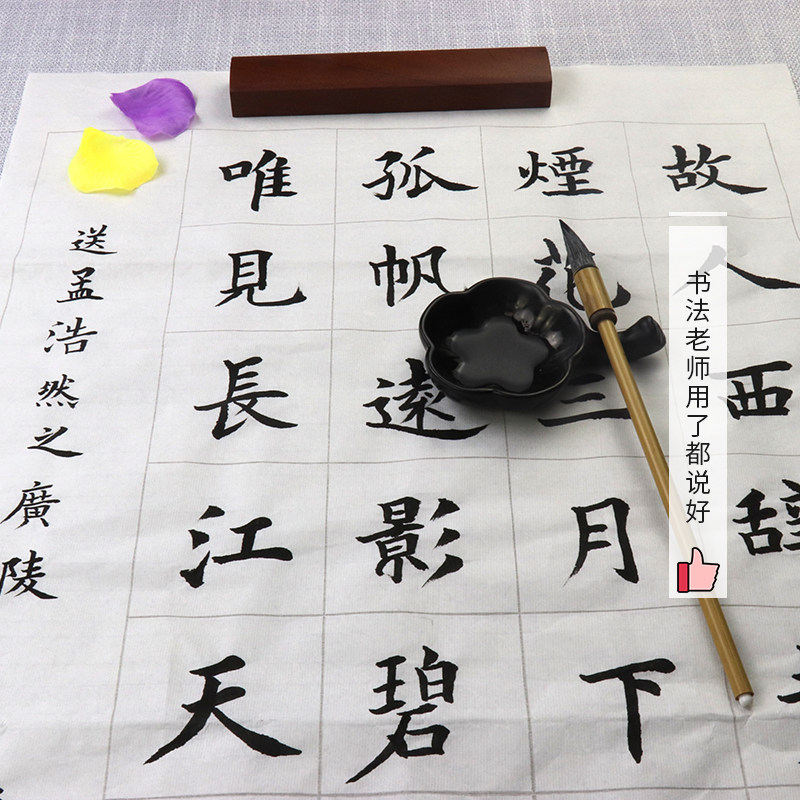 故人西辞
煙花三月下
孤帆遠影碧
唯見長江天
送孟浩然之廣陵
书法老师用了都说好